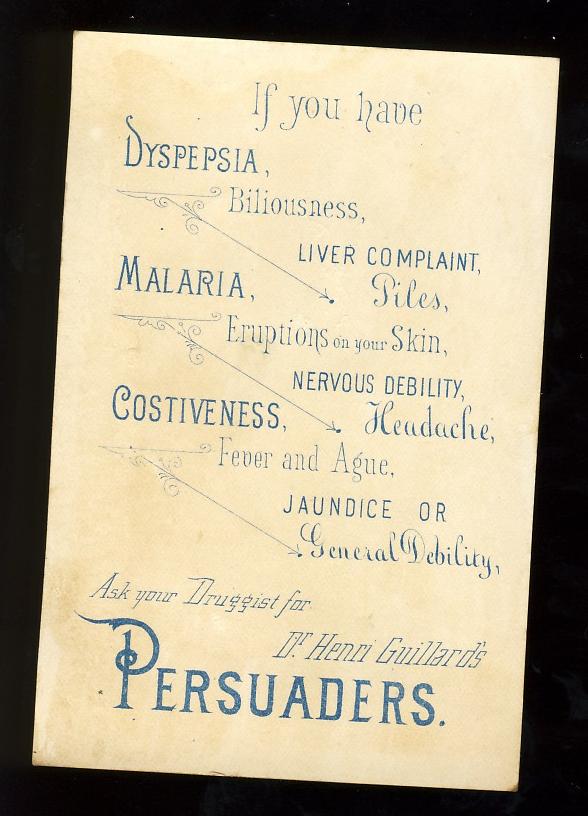 If you have
DYSPEPSIA,
Biliousness,
LIVER COMPLAINT,
Piles,
MALARIA,
Eruptions on your Skin,
NERVOUS DEBILITY,
Headache,
COSTIVENESS,
Fever and Ague,
JAUNDICE OR
General Debility,
Ask your Druggist for
Dr Henri Guillard's
PERSUADERS.